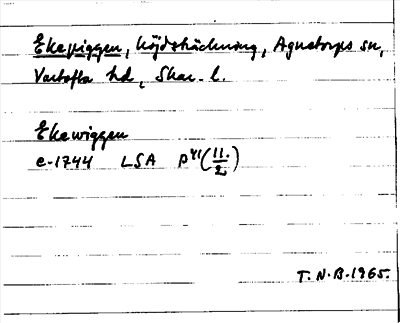 Ekepiggen, höjdsträckning, Agnetorps sn,
Vartofta hd, Skar. l.
Ekewiggen
c-1744 LSA P41 (11./2)
T. N. B. 1965.